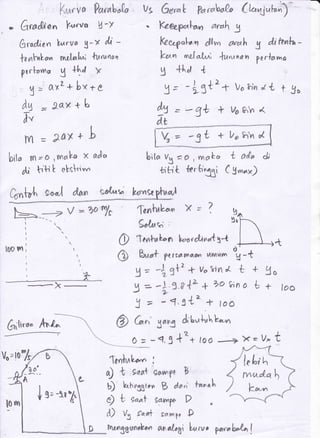 Kurva Parabola Vs Gerak Parabola (lanjutan)
• Gradien kurva y-x
Gradien kurva y-x di-
tentukan melalui turunan
pertama y thd x
y = ax² + bx + c
dy/dx = 2ax + b
m = 2ax + b
bila m=0, maka x ada
di titik ekstrim
• Kecepatan arah y
Kecepatan dlm arah y ditentu-
kan melalui turunan pertama
y thd t
y = -½gt² + Vo sin α t + yo
dy/dt = -gt + Vo sin α
Vy = -gt + Vo sin α
bila Vy = 0, maka t ada di
titik tertinggi (ymax)
Contoh soal dan solusi konseptual
V = 30 m/s
100 m
x
Tentukan x = ?
Solusi:
① Tentukan koordinat y-t
② Buat persamaan umum y-t
y = -½gt² + Vo sin α t + yo
y = -½ 9.8t² + 30 sin 0 t + 100
y = -4.9t² + 100
③ Cari yang dibutuhkan
0 = -4.9t² + 100 → x = Vx t
y
yo
t
Giliran Anda
Vo=10 m/s
30°
A
B
C
D
10 m
g = -9.8 m/s²
Tentukan :
a) t saat sampe B
b) ketinggian B dari tanah
c) t saat sampe D
d) Vy saat sampe D
menggunakan analogi kurva parabola!
lebih
mudah
kan